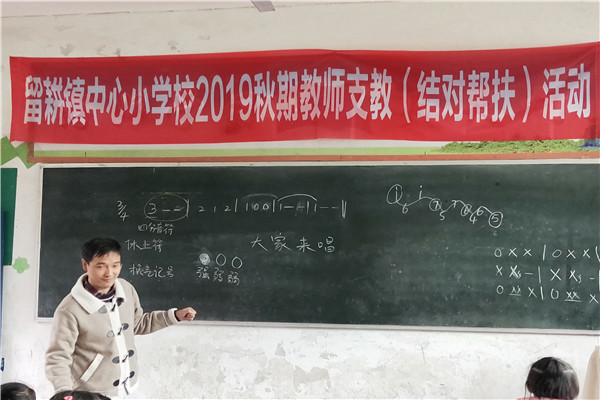 留耕镇中心小学校2019秋期教师支教（结对帮扶）活动
3/4 3 - - | 2 1 2 | 1 0 0 | 1 - - | 1 - - ‖
四分音符
休止符
大家来唱
强弱弱
i 6 i 7 5 7 6 4 6 5
0 X X | 0 X X
X X - | X X -
0 X X | 0 X X